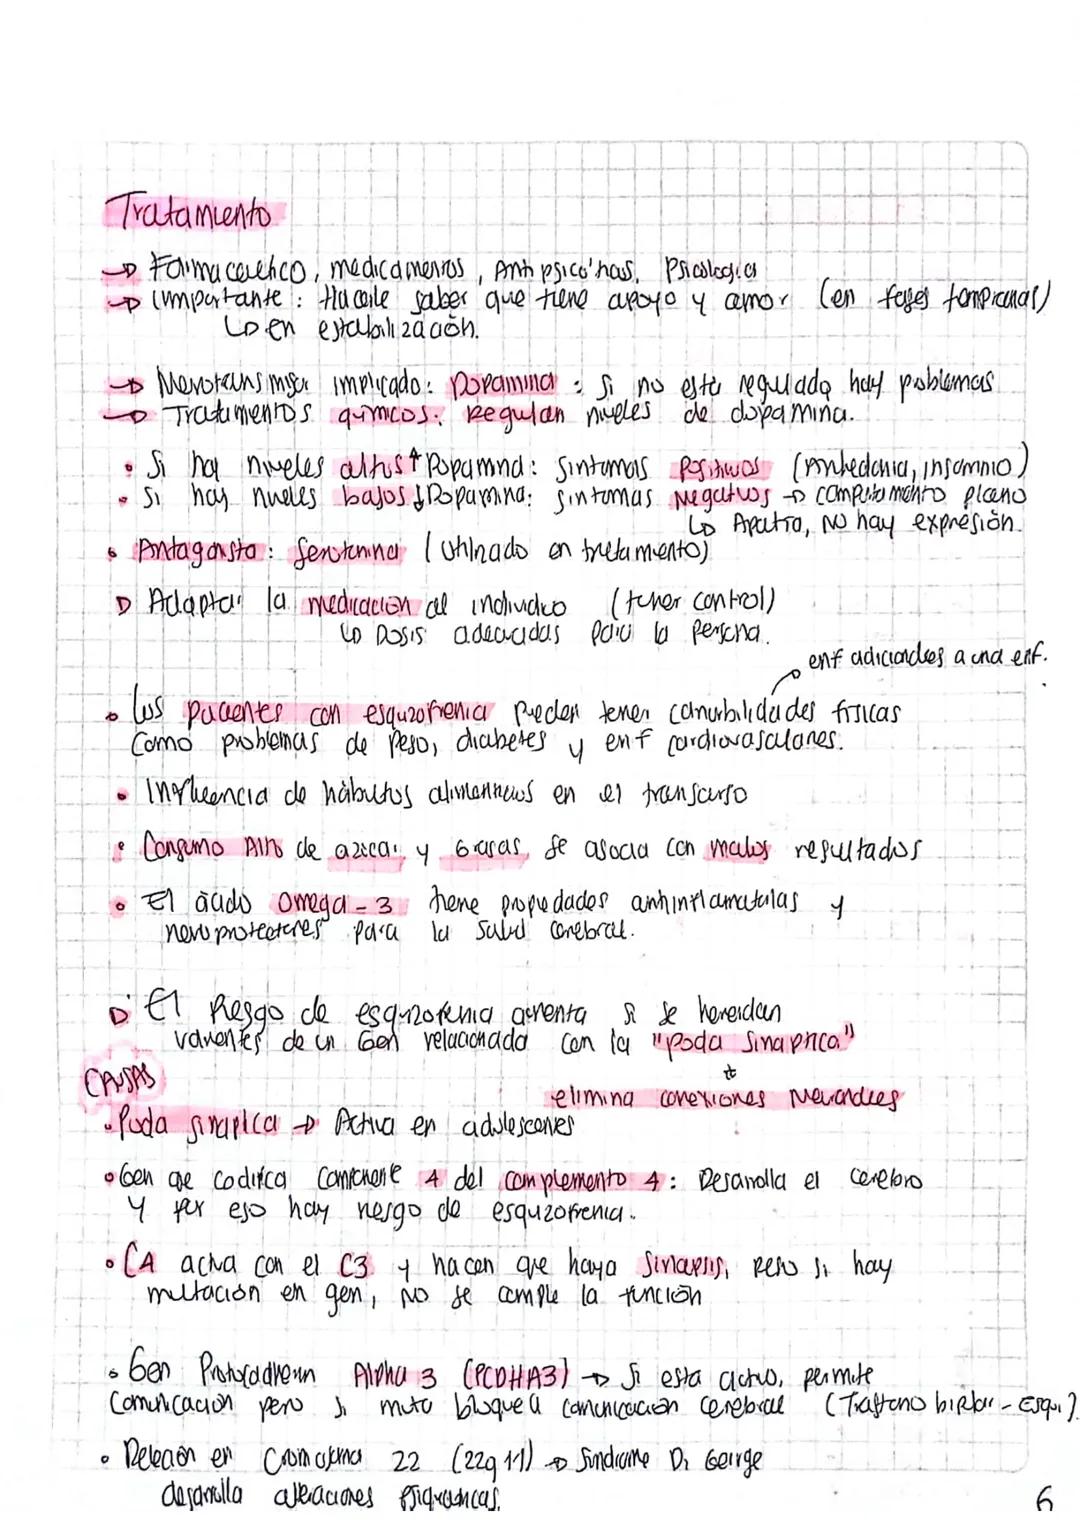 Tratamiento
→ Farmaceutico, medicamentos, Antipsicóticas, Psicologica
→ Importante: Hacerle saber que tiene apoyo y amor (en fases tempranas)
↳ en estabilización.
→ Neurotransmisor implicado: Dopamina: Si no esta regulada hay problemas
→ Tratamientos químicos: Regulan niveles de dopamina.
• Si hay niveles altos ↑ Dopamina: sintomas Positivos (Anhedonia, insomnio)
• Si hay niveles bajos ↓ Dopamina: sintomas Negativos → comportamiento plano
↳ Apatia, No hay expresión.
• Antagonista: Serotonina (Utilizado en tratamiento)
▷ Adaptar la medicación al individuo (tener control)
↳ Dosis adecuadas para la persona.
enf adicionales a una enf.
• Los pacientes con esquizofrenia pueden tener comorbilidades físicas
Como problemas de peso, diabetes y enf cardiovasculares.
• Influencia de hábitos alimenticios en el transcurso
• Consumo Alto de azucar y Grasas, se asocia con malos resultados
• El ácido omega-3 tiene propiedades antiinflamatorias y
neuroprotectores para la salud cerebral.
▷ El Riesgo de esquizofrenia aumenta si se heredan
variantes de un Gen relacionado con la "poda Sinaptica"
CAUSAS
elimina conexiones Neuronales
• Poda sinaptica → Activa en adolescentes
• Gen que codifica Componente 4 del complemento 4: Desarrolla el cerebro
Y por eso hay riesgo de esquizofrenia.
• C4 actua con el C3 y hacen que haya Sinapsis, pero si hay
mutación en gen, No se cumple la función
• Gen Protocadherin Alpha 3 (PCDHA3) → Si esta activo, permite
Comunicación pero si muta bloquea comunicación cerebral (Trastorno bipolar - Esqui).
• Deleción en Cromosoma 22 (22q 11) → Sindrome Di George
desarrolla alteraciones psiquiatricas.
6